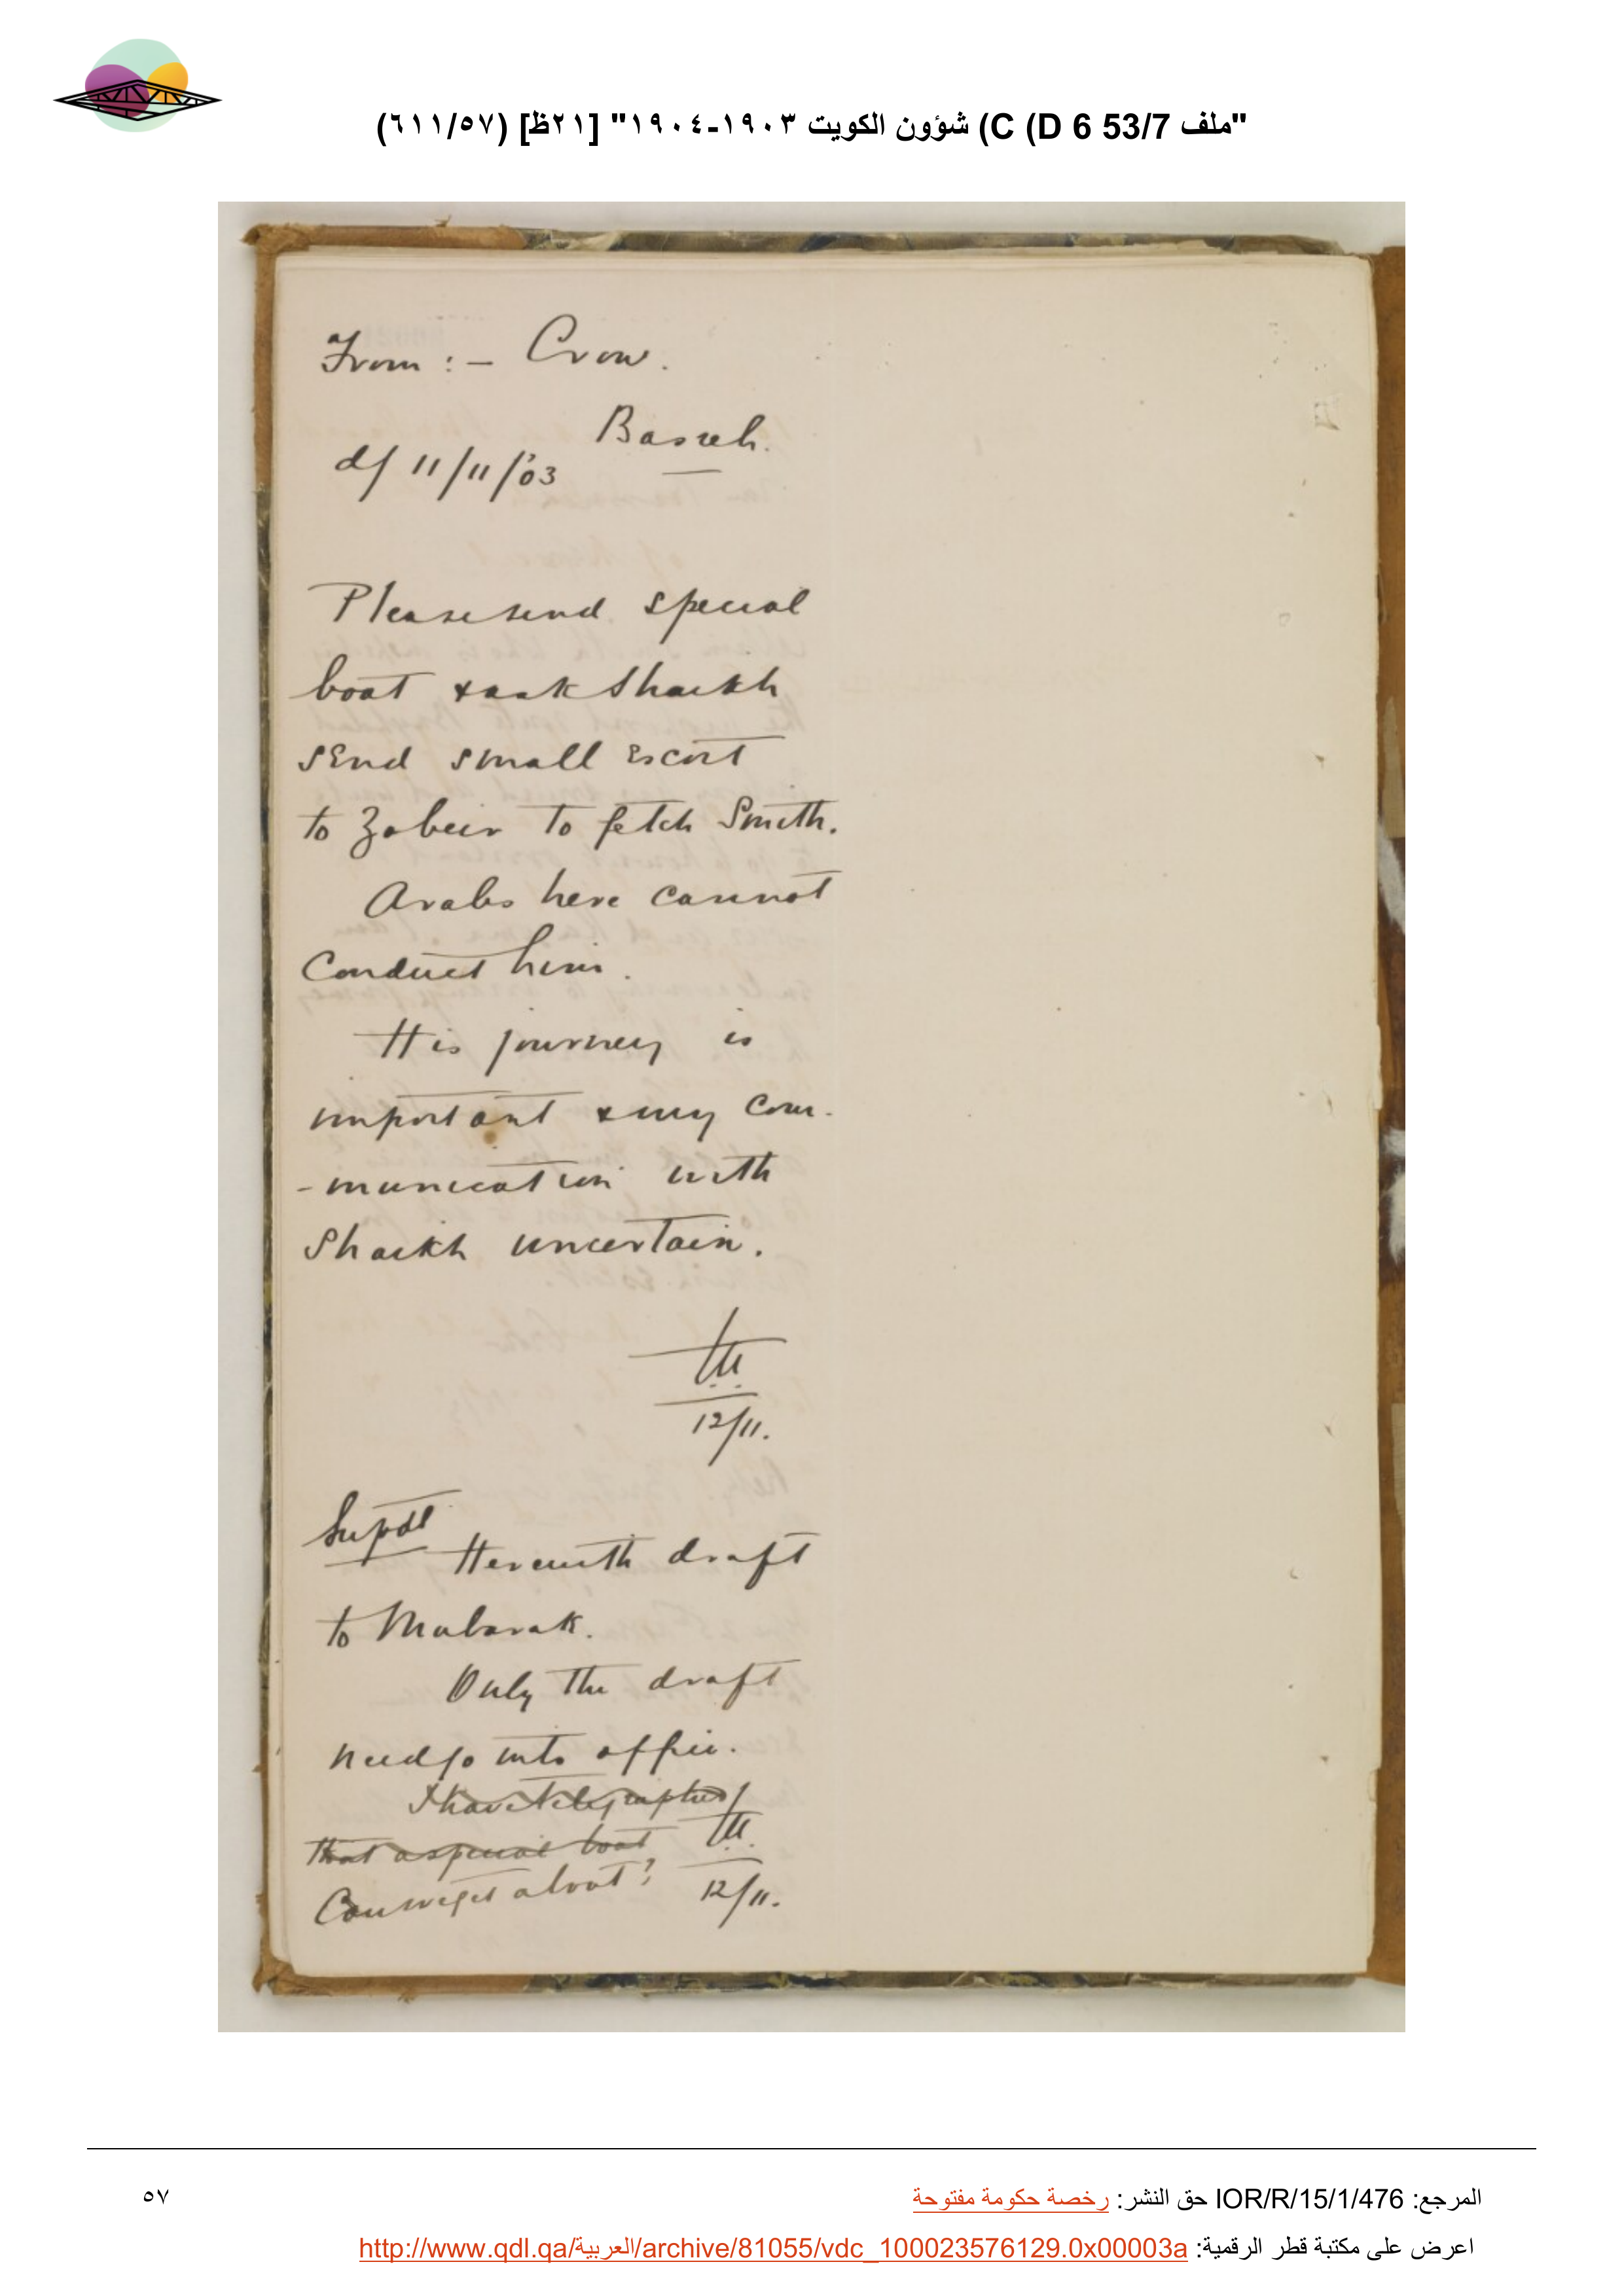 "ملف 53/7 C (D 6) شؤون الكويت ١٩٠٣-١٩٠٤" [٢١ظ] (٦١١/٥٧)
From :- Crow.
Basreh.
d/ 11/11/'03
Please send special
boat & ask Shaikh
send small escort
to Zobeir to fetch Smith.
Arabs here cannot
conduct him.
His journey is
important & my com-
-munication with
Shaikh uncertain.
12/11.
Supdt
Herewith draft
to Mubarak.
Only the draft
need go into office.
I have telegraphed
that a special boat
Can we get about?
12/11.
المرجع: IOR/R/15/1/476 حق النشر: رخصة حكومة مفتوحة
٥٧
اعرض على مكتبة قطر الرقمية: http://www.qdl.qa/العربية/archive/81055/vdc_100023576129.0x00003a